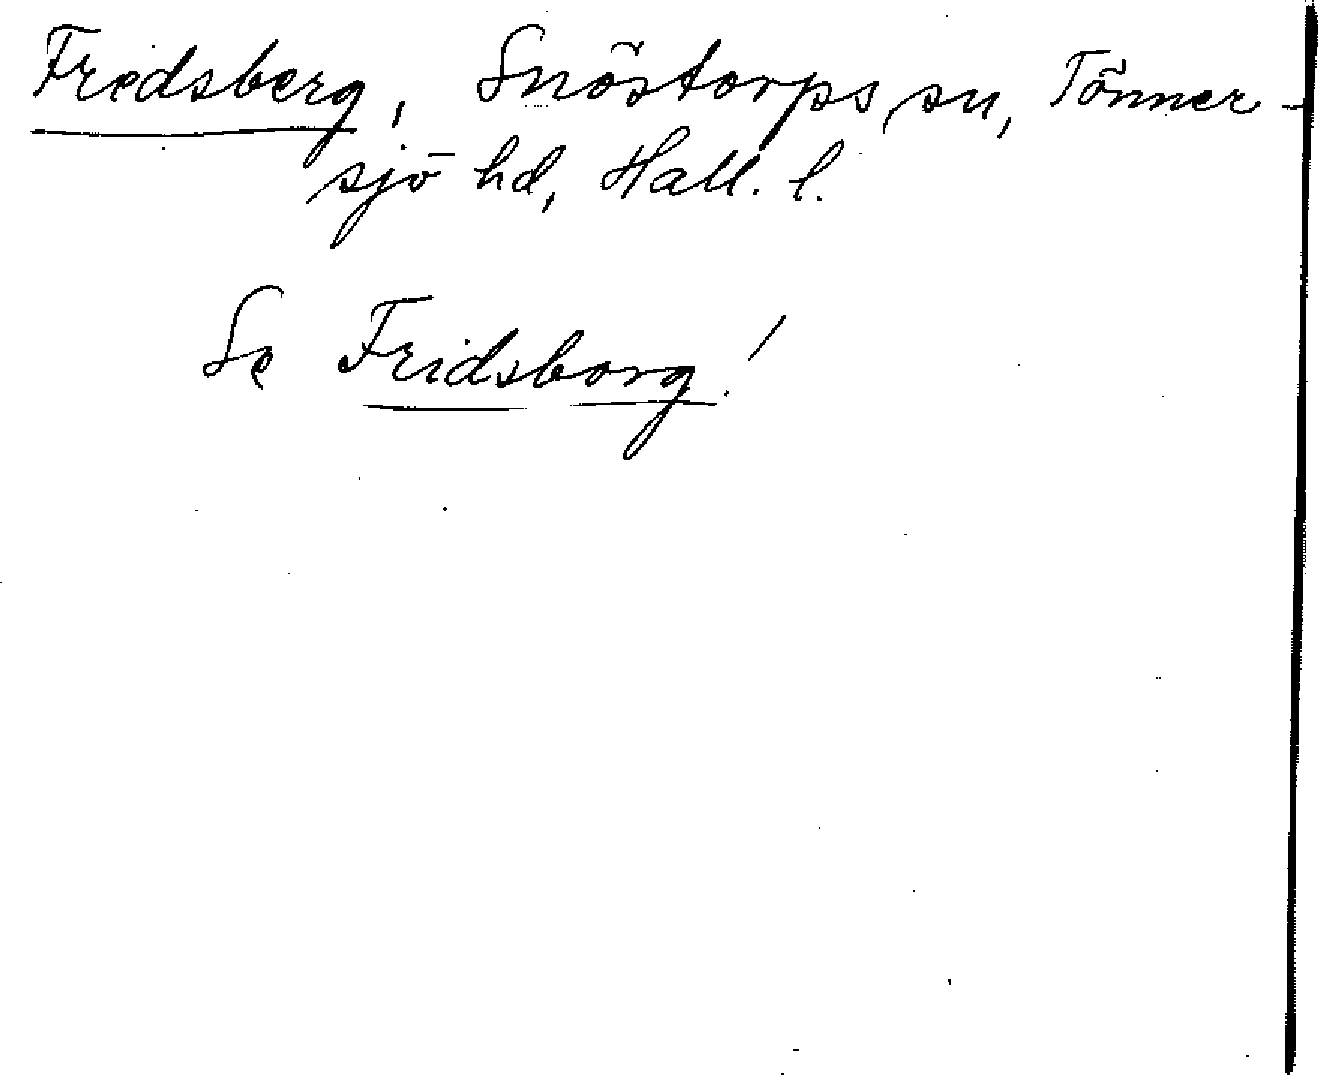 Fredsberg, Snöstorps sn, Tönner-
sjö hd, Hall. l.
Se Fridsborg!